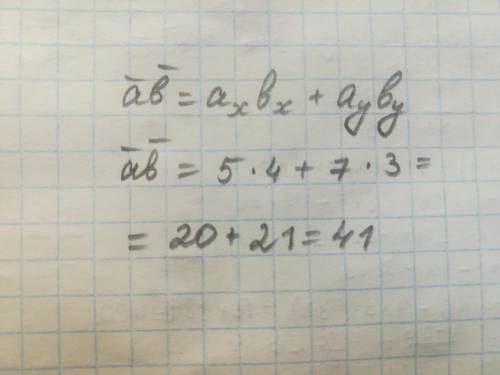 a̅b̅ = aₓbₓ + a_yb_y
a̅b̅ = 5·4 + 7·3 =
= 20 + 21 = 41